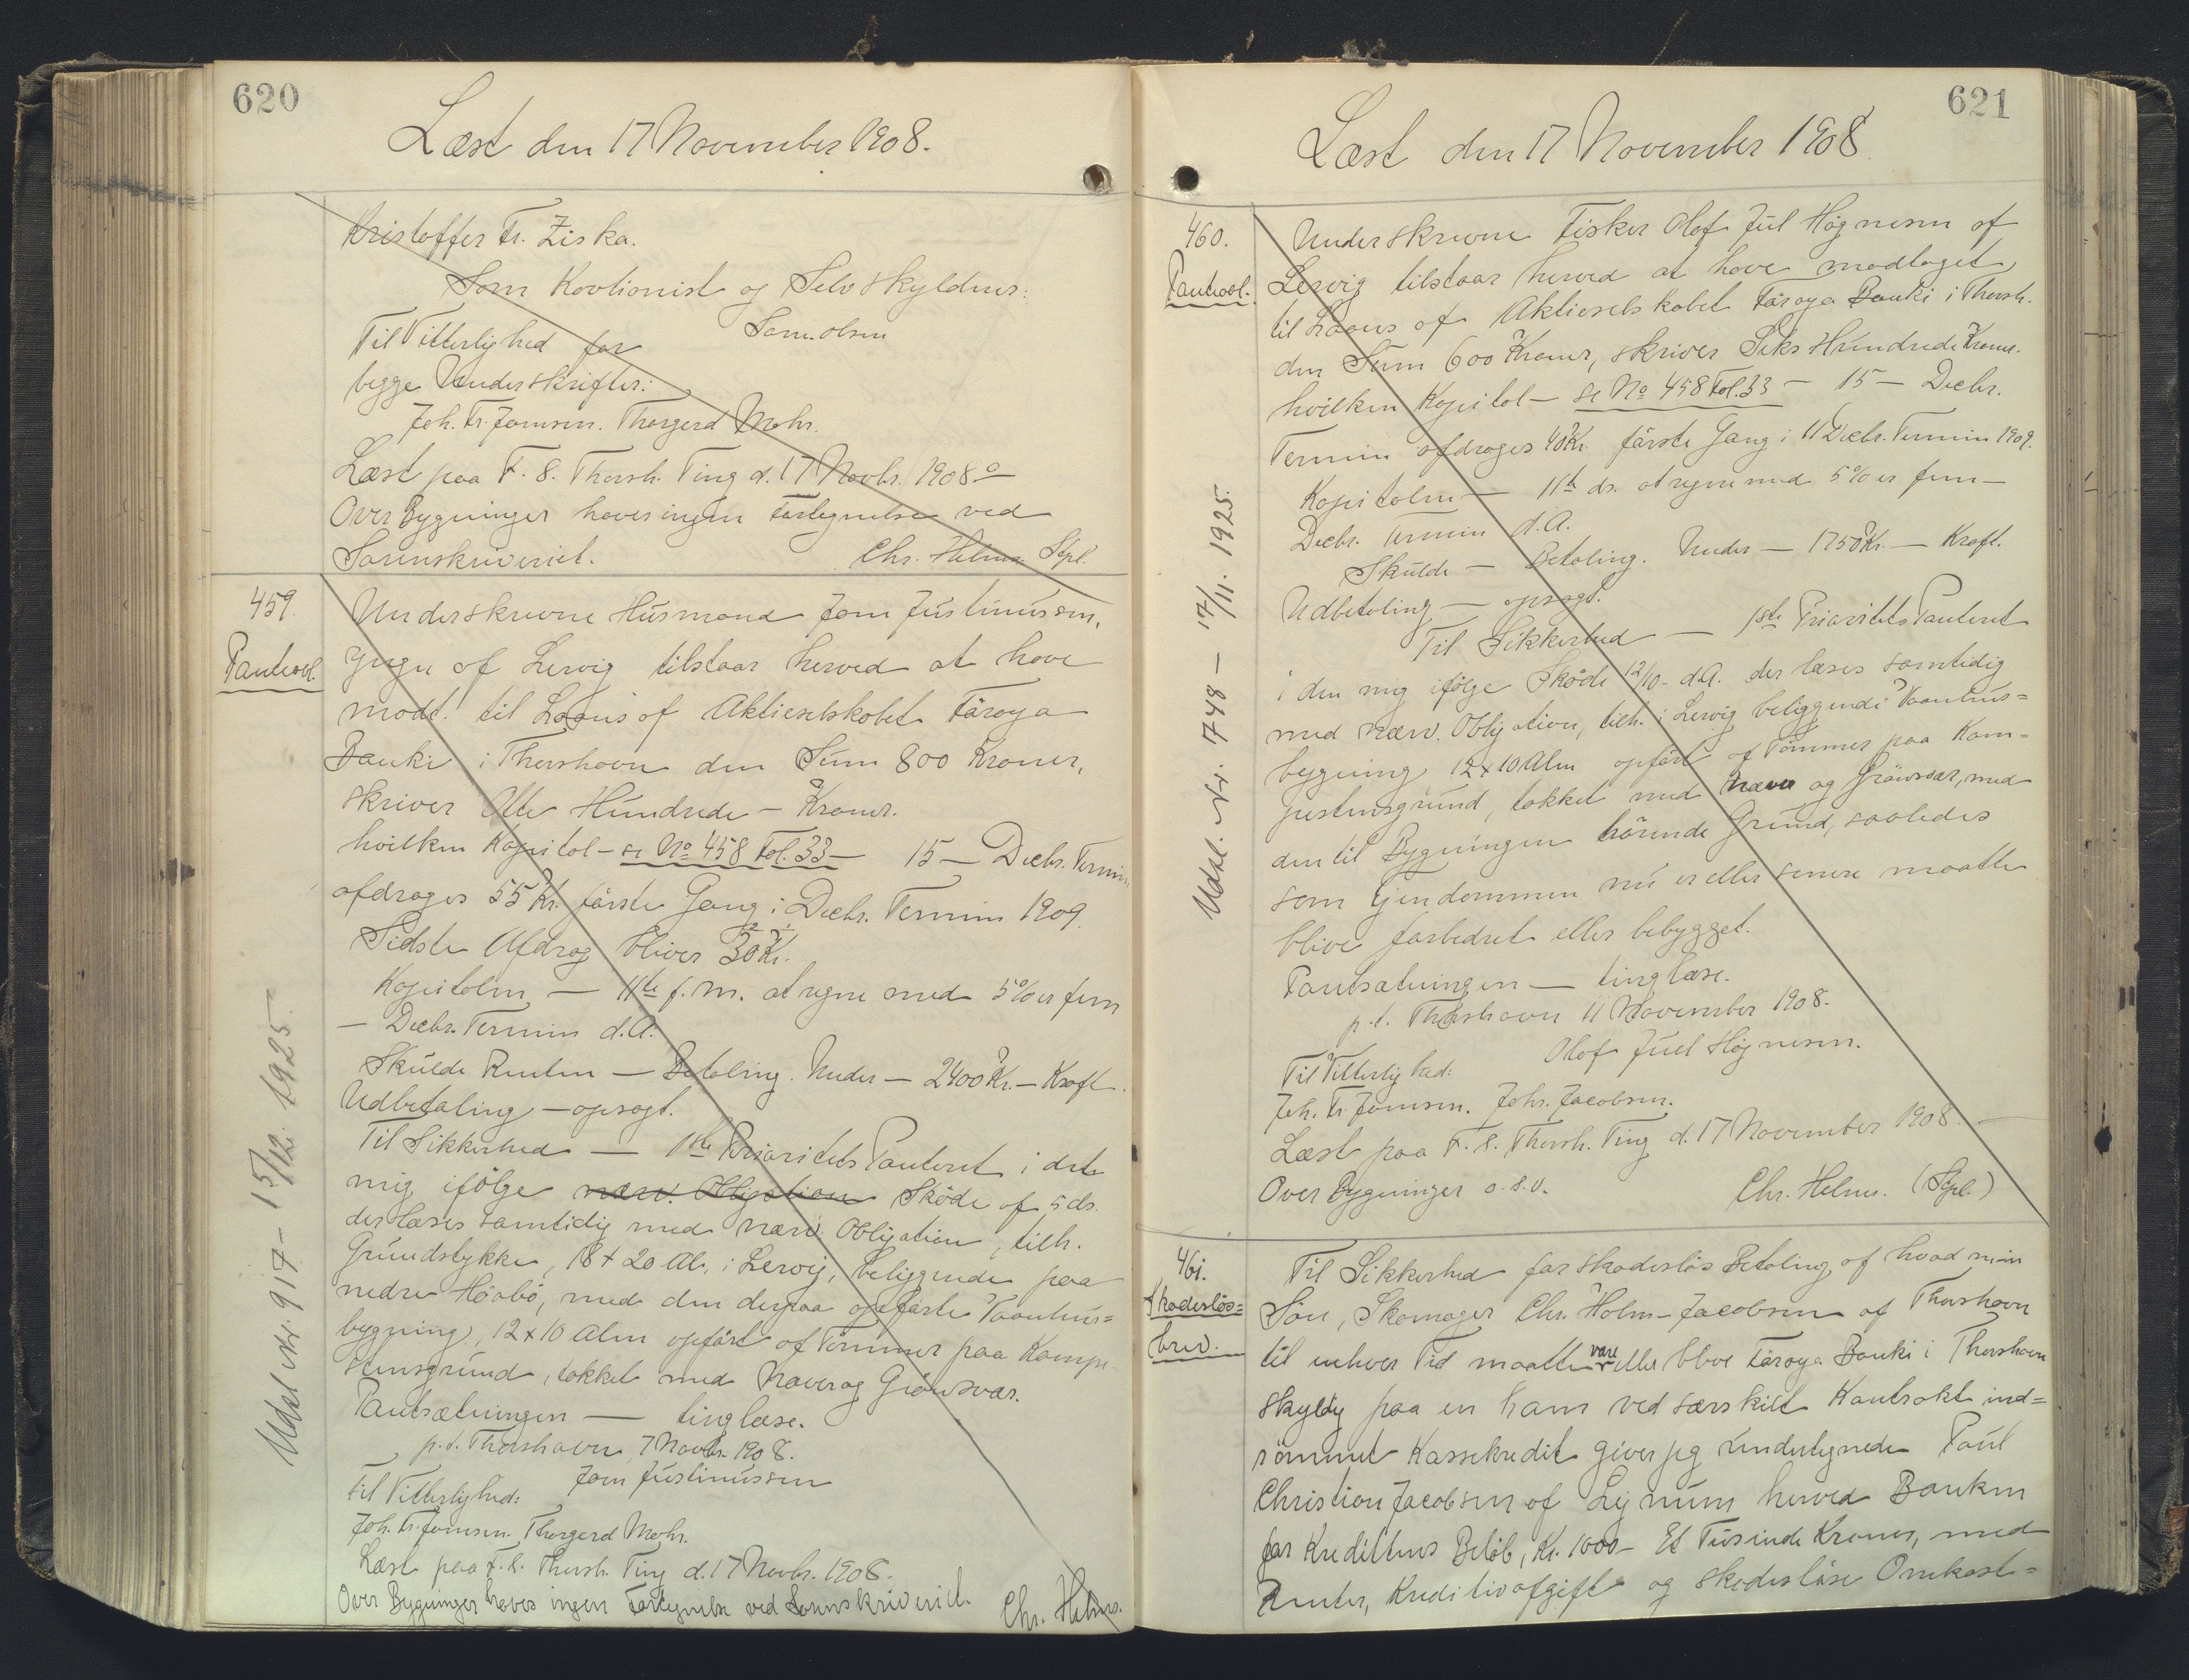 620
Læst den 17 November 1908.
Kristoffer Fr. Ziska.
Som Kavtionist og Selvskyldner:
Sam. Olsen
Til Vitterlighed for
begge Underskrifter:
Joh. Fr. Joensen. Thorgerd Mohr.
Læst paa F. S. Thorsh. Ting d. 17 Novbr. 1908
Over Bygninger haves ingen Fortegnelse ved
Sorenskriveriet. Chr. Helms. Spl.
459.
Panteobl.
Underskrevne Husmand Joen Justinussen,
yngre af Lervig tilstaar herved at have
modt. til Laans af Aktieselskabet Føroya
Banki i Thorshavn den Sum 800 Kroner,
skriver Otte Hundrede - Kroner.
hvilken Kapital - se No 458 Fol. 33 - 15 - Decbr. Termin
afdrages 55 Kr. første Gang i Decbr. Termin 1909.
Sidste Afdrag bliver 30 Kr.
Kapitalen - 11te f. M. at regne med 5% er fem
- Decbr. Termin d.A.
Skulde Renten - Betaling. Under - 2400 Kr. - Kraft.
Udbetaling - opsagt.
Til Sikkerhed - 1ste Prioritets Panteret i det
mig ifølge nærv. Obligation Skøde af 5 ds.
der læses samtidig med nærv. Obligation, tilh.
Grundstykke, 18 x 20 Al. i Lervig, beliggende paa
nedre Høabø, med den derpaa opførte Vaanhus=
bygning, 12 x 10 Alen opført af Tømmer paa Kampe=
stensgrund, takket med Næver og Grønsvær.
Pantsætningen - tinglæse.
p.t. Thorshavn, 7 Novbr. 1908.
Joen Justinussen
Til Vitterlighed:
Joh. Fr. Joensen. Thorgerd Mohr.
Læst paa F. S. Thorsh. Ting d. 17 Novbr. 1908.
Over Bygninger haves ingen Fortegnelse ved Sorenskriveriet. Chr. Helms.
Udsl. Nr. 917 - 15/12. 1925.
621
Læst den 17 November 1908.
460.
Panteobl.
Underskrevne Fisker Olof Jul Høgnesen af
Lervig tilstaar herved at have modtaget
til Laans af Aktieselskabet Føroya Banki i Thorsh.
den Sum 600 Kroner, skriver Seks Hundrede Kroner.
hvilken Kapital - se No 458 Fol. 33 - 15 - Decbr.
Termin afdrages 40 Kr. første Gang i 11 Decbr. Termin 1909.
Kapitalen - 11te ds. at regne med 5% er fem -
Decbr. Termin d.A.
Skulde - Betaling. Under - 1750 Kr. - Kraft.
Udbetaling - opsagt.
Til Sikkerhed - 1ste Prioritets Panteret
i den mig ifølge Skøde 12/10 - d.A. der læses samtidig
med nærv. Obligation, tilh. i Lervig beliggende Vaanhus=
bygning 12 x 10 Alen opført af Tømmer paa Kam=
pestensgrund, takket med Næver og Grønsvær, med
den til Bygningen hørende Grund, saaledes
som Ejendommen nu er eller senere maatte
blive forbedret eller bebygget.
Pantsætningen - tinglæse.
p.t. Thorshavn 11 November 1908.
Olof Juel Høgnesen.
Til Vitterlighed:
Joh. Fr. Joensen. Johs. Jacobsen.
Læst paa F. S. Thorsh. Ting d. 17 November 1908. -
Over Bygninger o.s.v. Chr. Helms. (Spl.)
Udsl. Nr. 748 - 17/11. 1925.
461.
Skadesløs=
brev.
Til Sikkerhed for skadesløs Betaling af hvad min
Søn, Skomager Chr. Holm-Jacobsen af Thorshavn
til enhver Tid maatte være eller blive Føroya Banki i Thorshavn
skyldig paa en ham ved særskilt Kontrakt ind=
rømmet Kassekredit giver jeg undertegnede Poul
Christian Jacobsen af Lejnum herved Banken
for Kredittens Beløb, Kr. 1000 - Et Tusinde Kroner, med
Renter, Kreditivafgift og skadesløse Omkost=